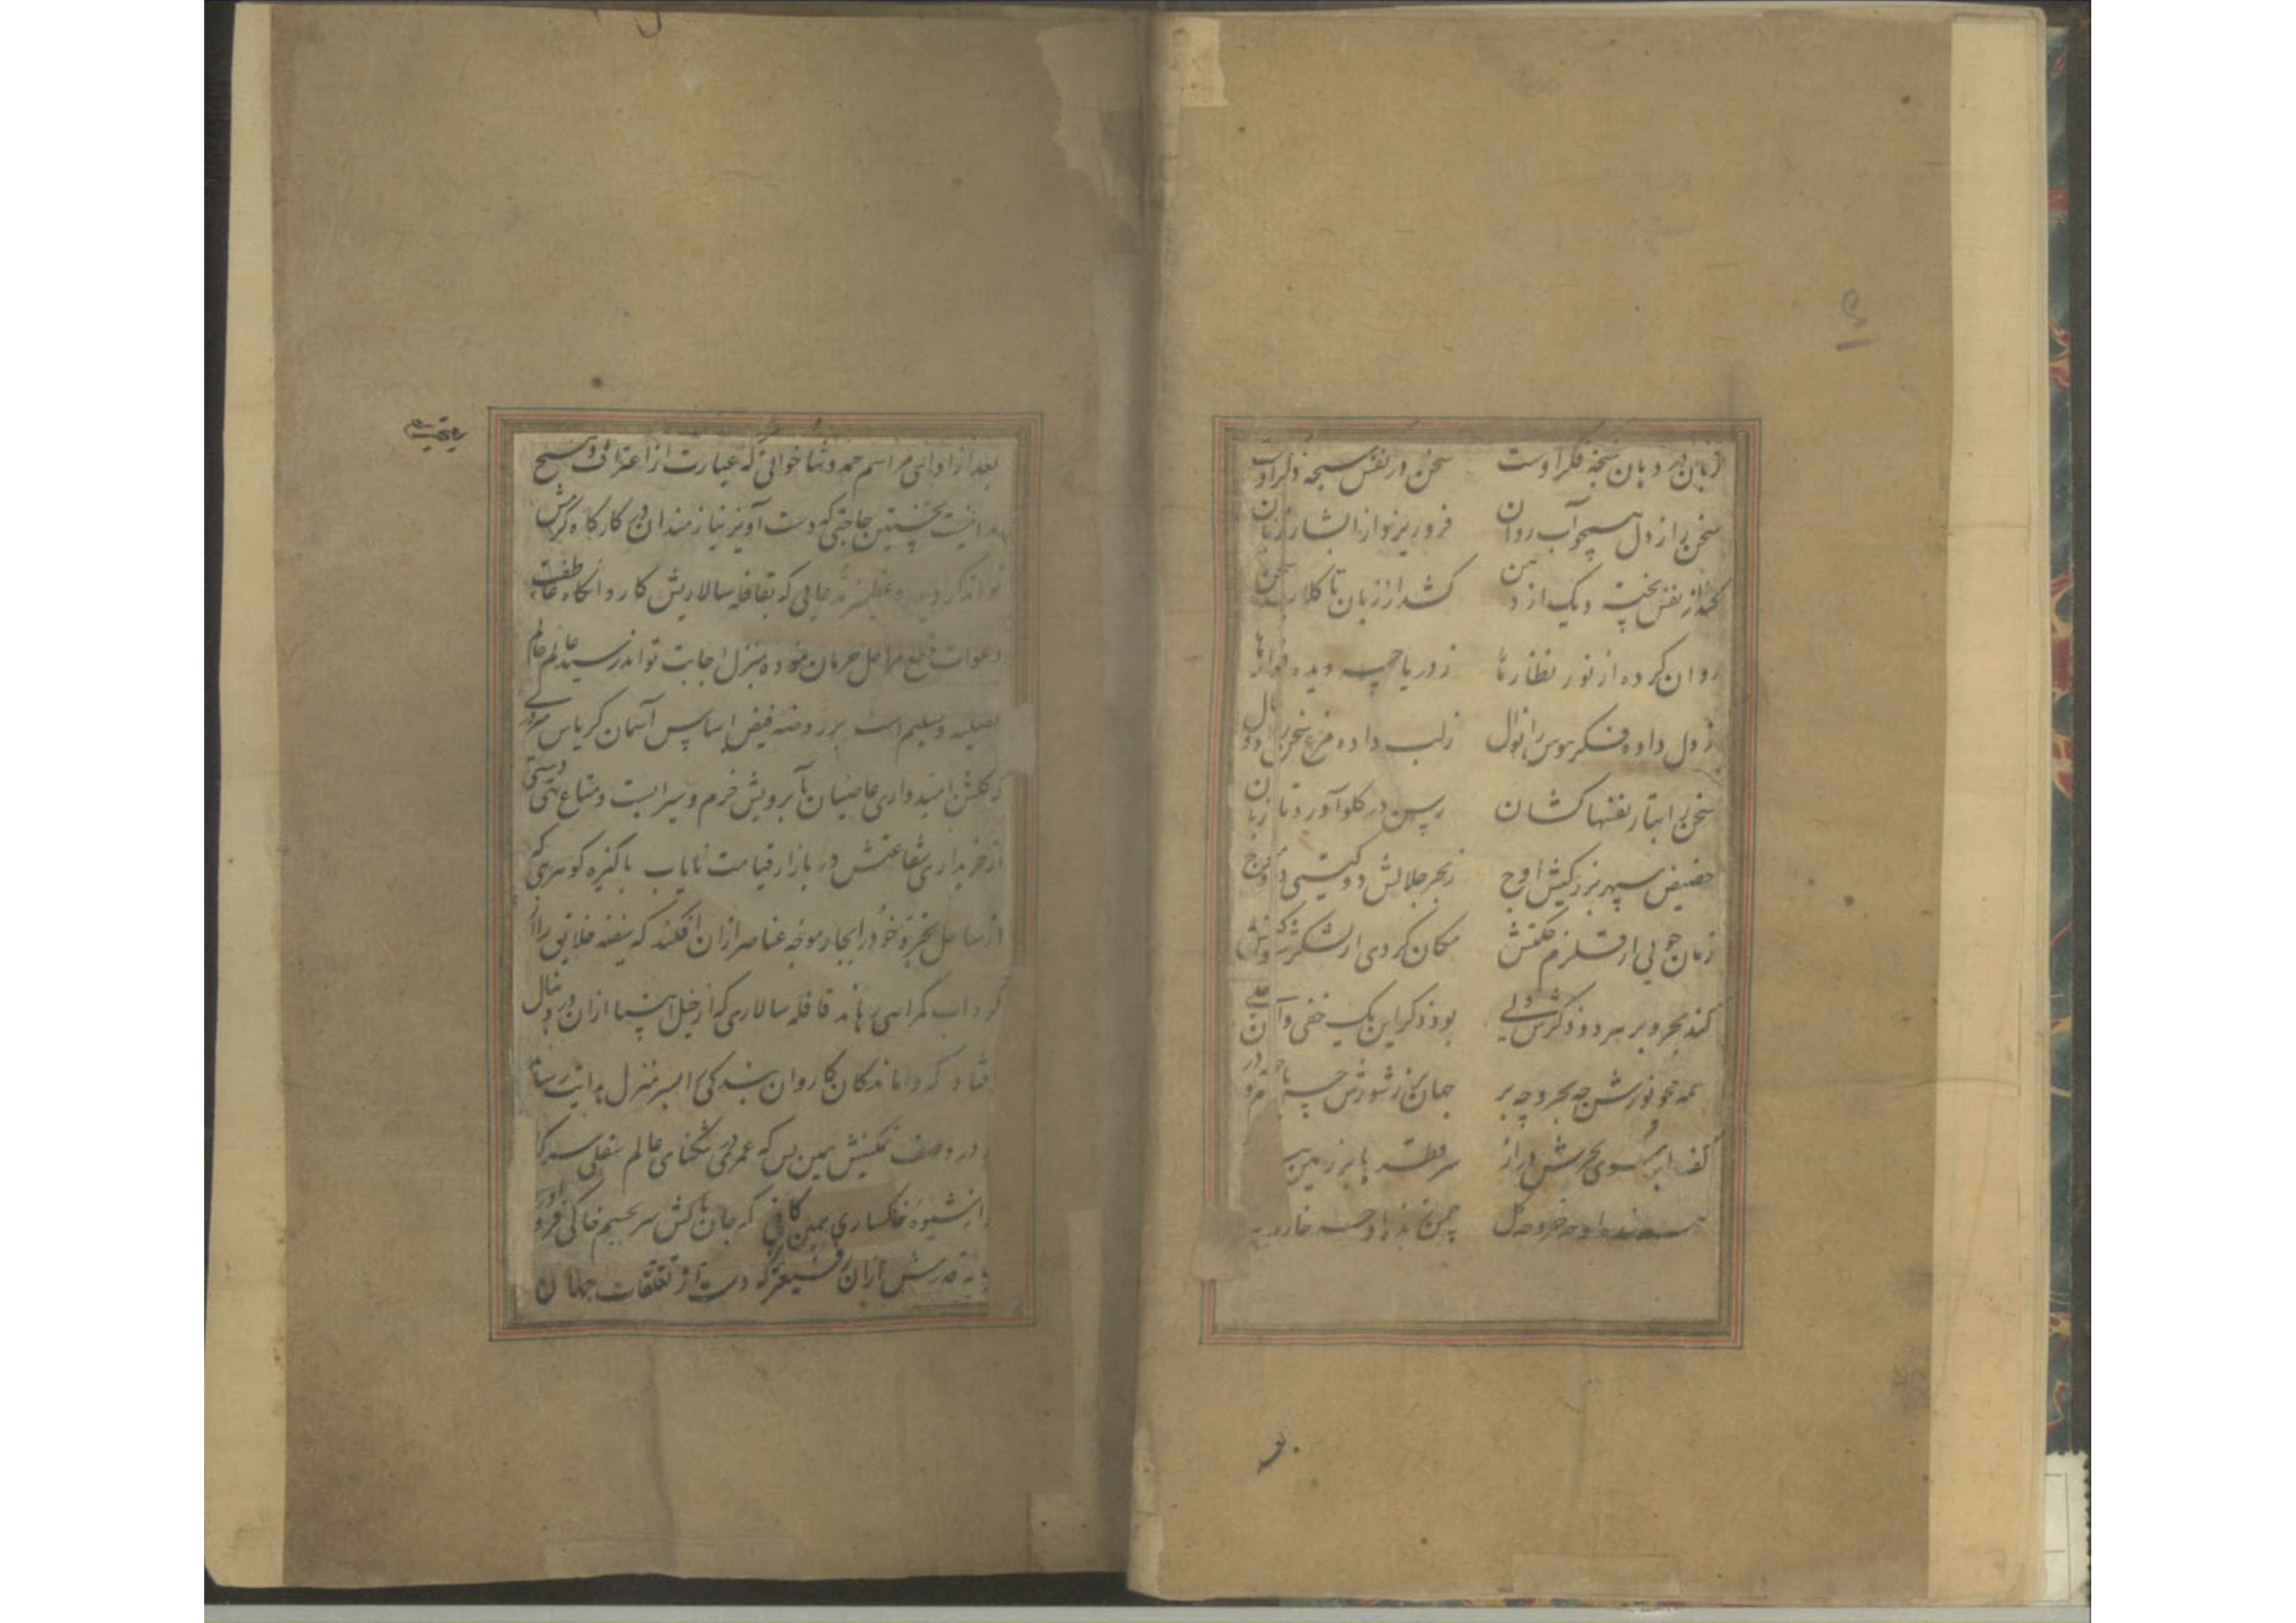 زبان در دهان نسخهٔ فکر اوست سخن در نفس سبحهٔ ذکر اوست
سخن را ز دل همچو آب روان فرو ریزد از آبشار زبان
کند از نفس پخته دیک از دهن کشد از زبان تا کلاب سخن
روان کرده از نور نظارها ز دریاچه دیده فوارها
ز دل داده فکر هوس را نوال ز لب داده مرغ سخن را دو بال
سخن را بتار نفسها کشان رسن در کلو آورد تا زبان
حضیض سپهر بزرکیش اوج ز بحر جلالش دو کیتی دو موج
زمان جویی از قلزم حکمتش مکان کردی از لشکر شوکتش
کند بحر و بر هر دو ذکرش ولی بود ذکر این یک خفی و آن جلی
همه محو نورش چه بحر و چه بر جهان پر ز شورش چه
کف ابر سوی بحرش دراز سر قطره بر زمین
چمن
بعد از ادای مراسم حمد و ثنا خوانی که عبارت از اعتراف
نخستین حاجتی که دست آویز نیازمندان در کارکاه
تواند کردید و عظیم‌تر دعایی که بقافله سالاریش کاروانکاه عاطفت
دعوات قطع مراحل حرمان نموده بمنزل اجابت تواند رسید
تسلیم است بر روضه فیض اساس آسمان کریاس سروری
که کلشن امیدواری عاصیان بآبرویش خرم و سیرابست و متاع تهی دستی
از خریداری شفاعتش در بازار قیامت نایاب پاکیزه کوهری که
از ساحل بحر ایجاد موجه عناصر از ان افکند که سفینه خلایق را از
کرداب کمراهی رهاند قافله سالاری که از خیل انبیا ازان در دنبال
افتاد که واماندکان کاروان بندکی را بسرمنزل هدایت رساند
در وصف تمکینش همین بس که عمری در تنکنای عالم سفلی
از شیوه خاکساری همین کافی که جان پاکش سر بجسم خاکی فرو
پایه قدرش ازان رفیعتر که دست از تعلقات جهان